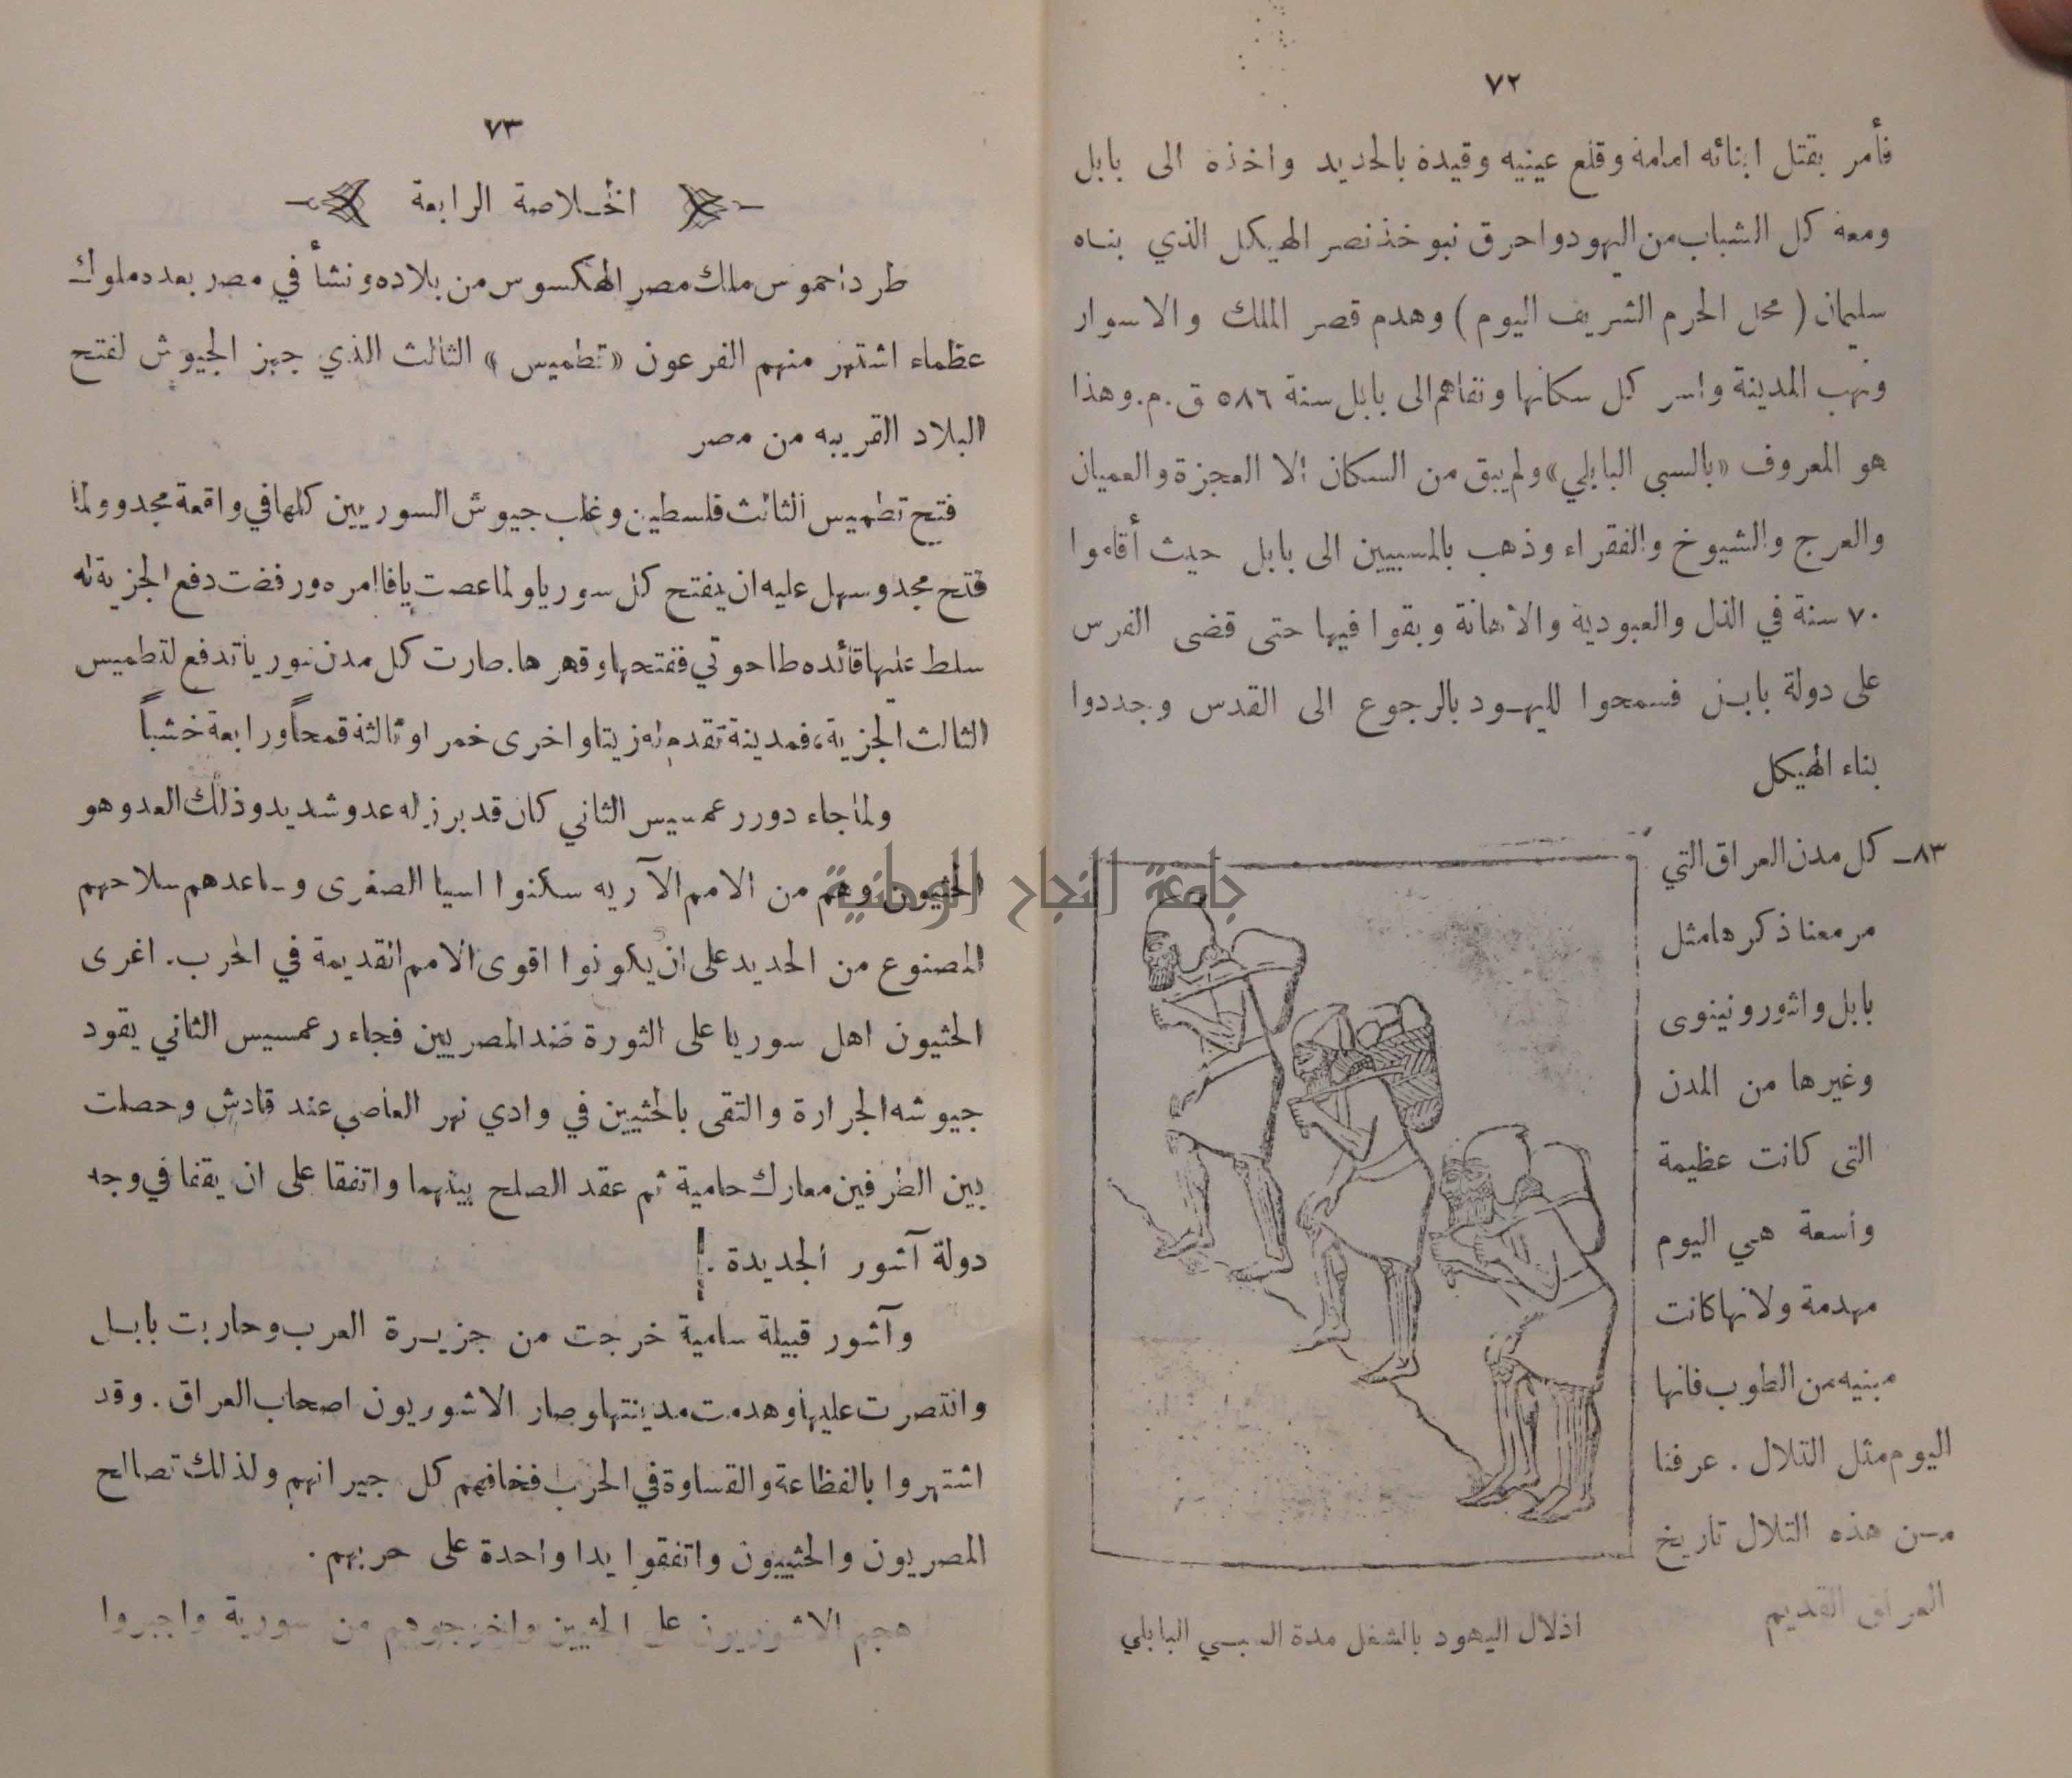 ٧٢
فأمر بقتل ابنائه امامه وقلع عينيه وقيده بالحديد واخذه الى بابل
ومعه كل الشباب من اليهود واحرق نبوخذنصر الهيكل الذي بناه
سليمان ( محل الحرم الشريف اليوم ) وهدم قصر الملك والاسوار
ونهب المدينة واسر كل سكانها ونفاهم الى بابل سنة ٥٨٦ ق.م. وهذا
هو المعروف «بالسبى البابلي» ولم يبق من السكان الا العجزة والعميان
والعرج والشيوخ والفقراء وذهب بالمسبيين الى بابل حيث أقاموا
٧٠ سنة في الذل والعبودية والاهانة وبقوا فيها حتى قضى الفرس
على دولة بابل فسمحوا لليهود بالرجوع الى القدس وجددوا
بناء الهيكل
٨٣ـ كل مدن العراق التي
مر معنا ذكرها مثل
بابل واشور ونينوى
وغيرها من المدن
التى كانت عظيمة
واسعة هي اليوم
مهدمة ولانها كانت
مبنيه من الطوب فانها
اليوم مثل التلال . عرفنا
من هذه التلال تاريخ
العراق القديم
اذلال اليهود بالشغل مدة السبي البابلي
٧٣
الخلاصة الرابعة
طرد احموس ملك مصر الهكسوس من بلاده ونشأ في مصر بعده ملوك
عظماء اشتهر منهم الفرعون «تطميس» الثالث الذي جهز الجيوش لفتح
البلاد القريبه من مصر
فتح تطميس الثالث فلسطين وغلب جيوش السوريين كلها في واقعة مجدو ولما
فتح مجدو سهل عليه ان يفتح كل سوريا ولما عصت يافا امره ورفضت دفع الجزية له
سلط عليها قائده طاحوتي ففتحها وقهرها. صارت كل مدن سوريا تدفع لتطميس
الثالث الجزية، فمدينة تقدم له زيتا واخرى خمرا وثالثة قمحاً ورابعة خشباً
ولما جاء دور رعمسيس الثاني كان قد برز له عدو شديد وذلك العدو هو
الحثيون وهم من الامم الآريه سكنوا اسيا الصغرى وساعدهم سلاحهم
المصنوع من الحديد على ان يكونوا اقوى الامم القديمة في الحرب. اغرى
الحثيون اهل سوريا على الثورة ضد المصريين فجاء رعمسيس الثاني يقود
جيوشه الجرارة والتقى بالحثيين في وادي نهر العاصي عند قادش وحصلت
بين الطرفين معارك حامية ثم عقد الصلح بينهما واتفقا على ان يقفا في وجه
دولة آشور الجديدة .
وآشور قبيلة سامية خرجت من جزيرة العرب وحاربت بابل
وانتصرت عليها وهدمت مدينتها وصار الاشوريون اصحاب العراق . وقد
اشتهروا بالفظاعة والقساوة في الحرب فخافهم كل جيرانهم ولذلك تصالح
المصريون والحثييون واتفقوا يدا واحدة على حربهم .
هجم الاشوريون على الحثيين واخرجوهم من سورية واجبروا
جامعة النجاح الوطنية